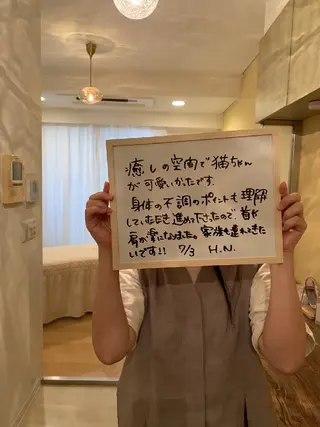 癒しの空間で猫ちゃん
が可愛いかたです。
身体の不調のポイントも理解
していただき進めて下さったので、首や
肩が楽になりました。家族も連れてきた
いです!! 7/3 H.N.